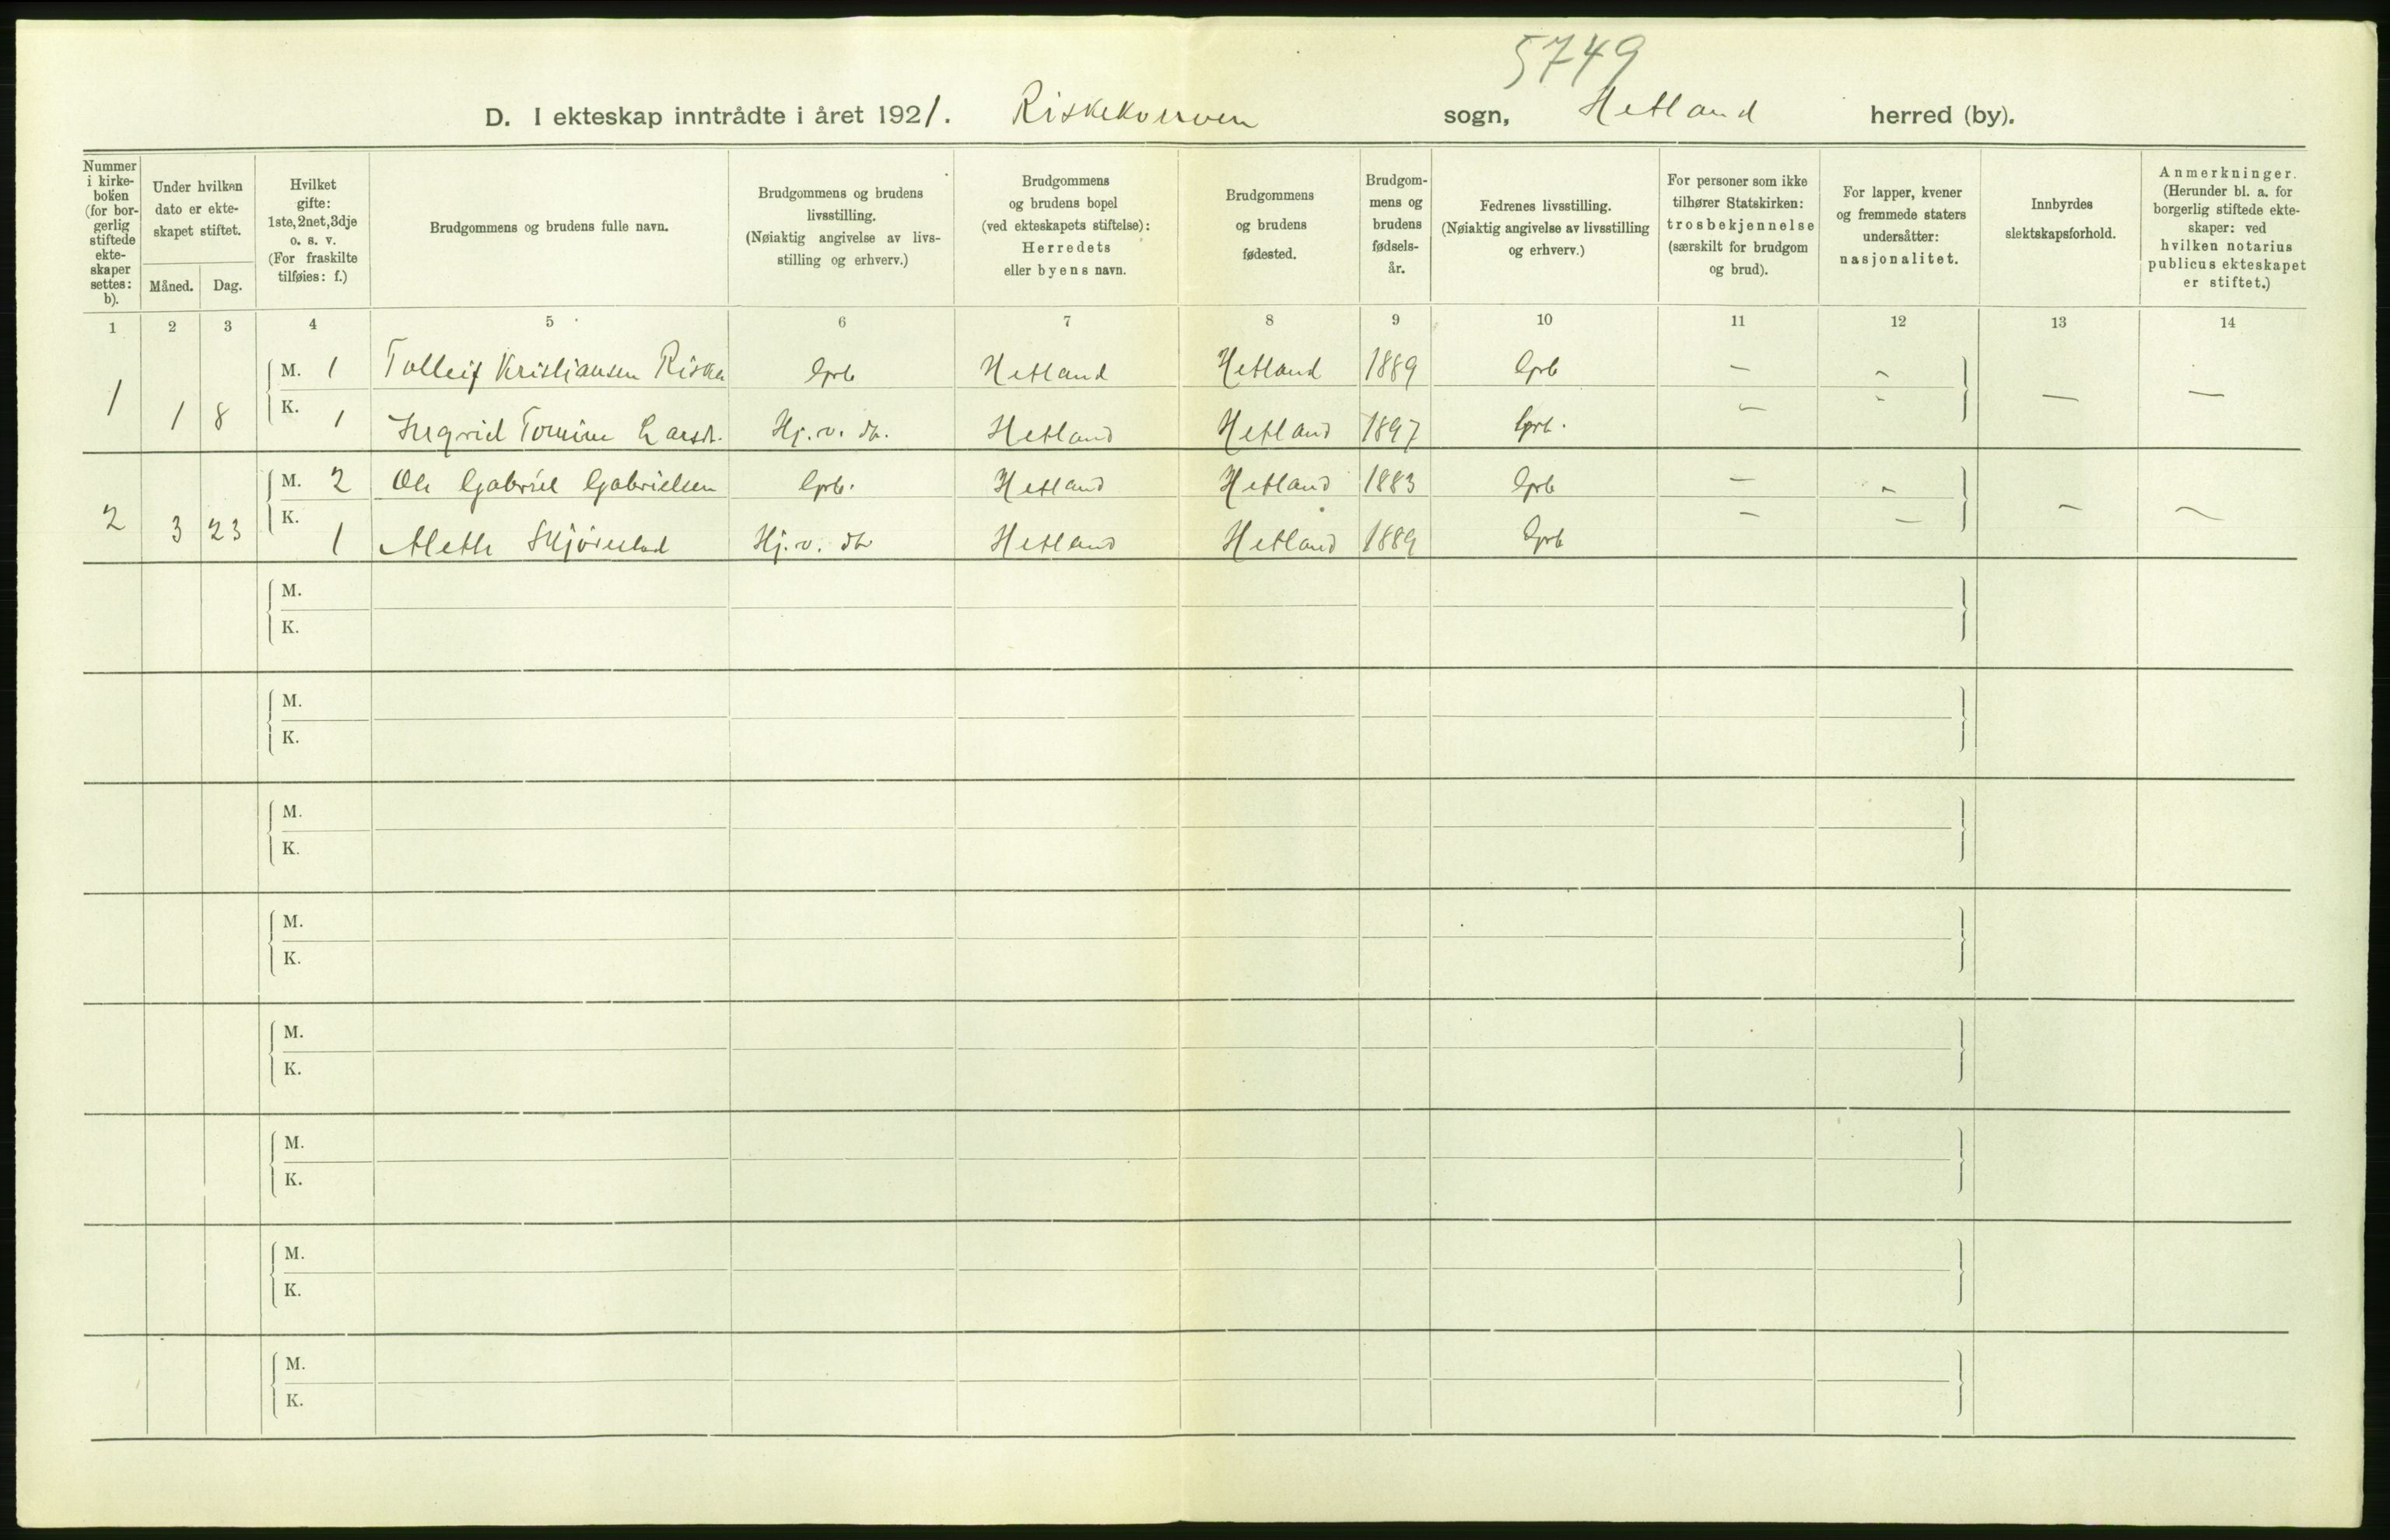 5749
D. I ekteskap inntrådte i året 1921. Riskekverven sogn, Hetland herred (by).
Nummer i kirke- boken (for bor- gerlig stiftede ekte- skaper settes: b).
Under hvilken dato er ekte- skapet stiftet.
Måned. Dag.
Hvilket gifte: 1ste, 2net, 3dje o. s. v. (For fraskilte tilføies: f.)
Brudgommens og brudens fulle navn.
Brudgommens og brudens livsstilling. (Nøiaktig angivelse av livs- stilling og erhverv.)
Brudgommens og brudens bopel (ved ekteskapets stiftelse): Herredets eller byens navn.
Brudgommens og brudens fødested.
Brudgom- mens og brudens fødsels- år.
Fedrenes livsstilling. (Nøiaktig angivelse av livsstilling og erhverv.)
For personer som ikke tilhører Statskirken: trosbekjennelse (særskilt for brudgom og brud).
For lapper, kvener og fremmede staters undersåtter: nasjonalitet.
Innbyrdes slektskapsforhold.
Anmerkninger. (Herunder bl. a. for borgerlig stiftede ekte- skaper: ved hvilken notarius publicus ekteskapet er stiftet.)
1 2 3 4 5 6 7 8 9 10 11 12 13 14
1 1 8 M. 1 Tolleif Kristiansen Riska Grb Hetland Hetland 1889 Grb — — — —
K. 1 Ingrid Tomine Larsdt. Hj. v. dt. Hetland Hetland 1897 Grb. — -
2 3 23 M. 2 Ole Gabriel Gabrielsen Grb. Hetland Hetland 1883 Grb — — — —
K. 1 Alette Skjørestad Hj. v. dt Hetland Hetland 1889 Grb — —
M.
K.
M.
K.
M.
K.
M.
K.
M.
K.
M.
K.
M.
K.
M.
K.